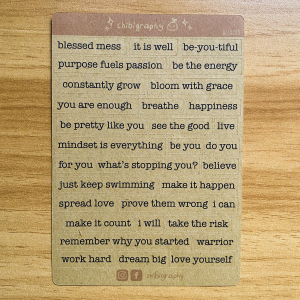 chibigraphy
blessed mess it is well be-you-tiful
purpose fuels passion be the energy
constantly grow bloom with grace
you are enough breathe happiness
be pretty like you see the good live
mindset is everything be you do you
for you what's stopping you? believe
just keep swimming make it happen
spread love prove them wrong i can
make it count i will take the risk
remember why you started warrior
work hard dream big love yourself
chibigraphy